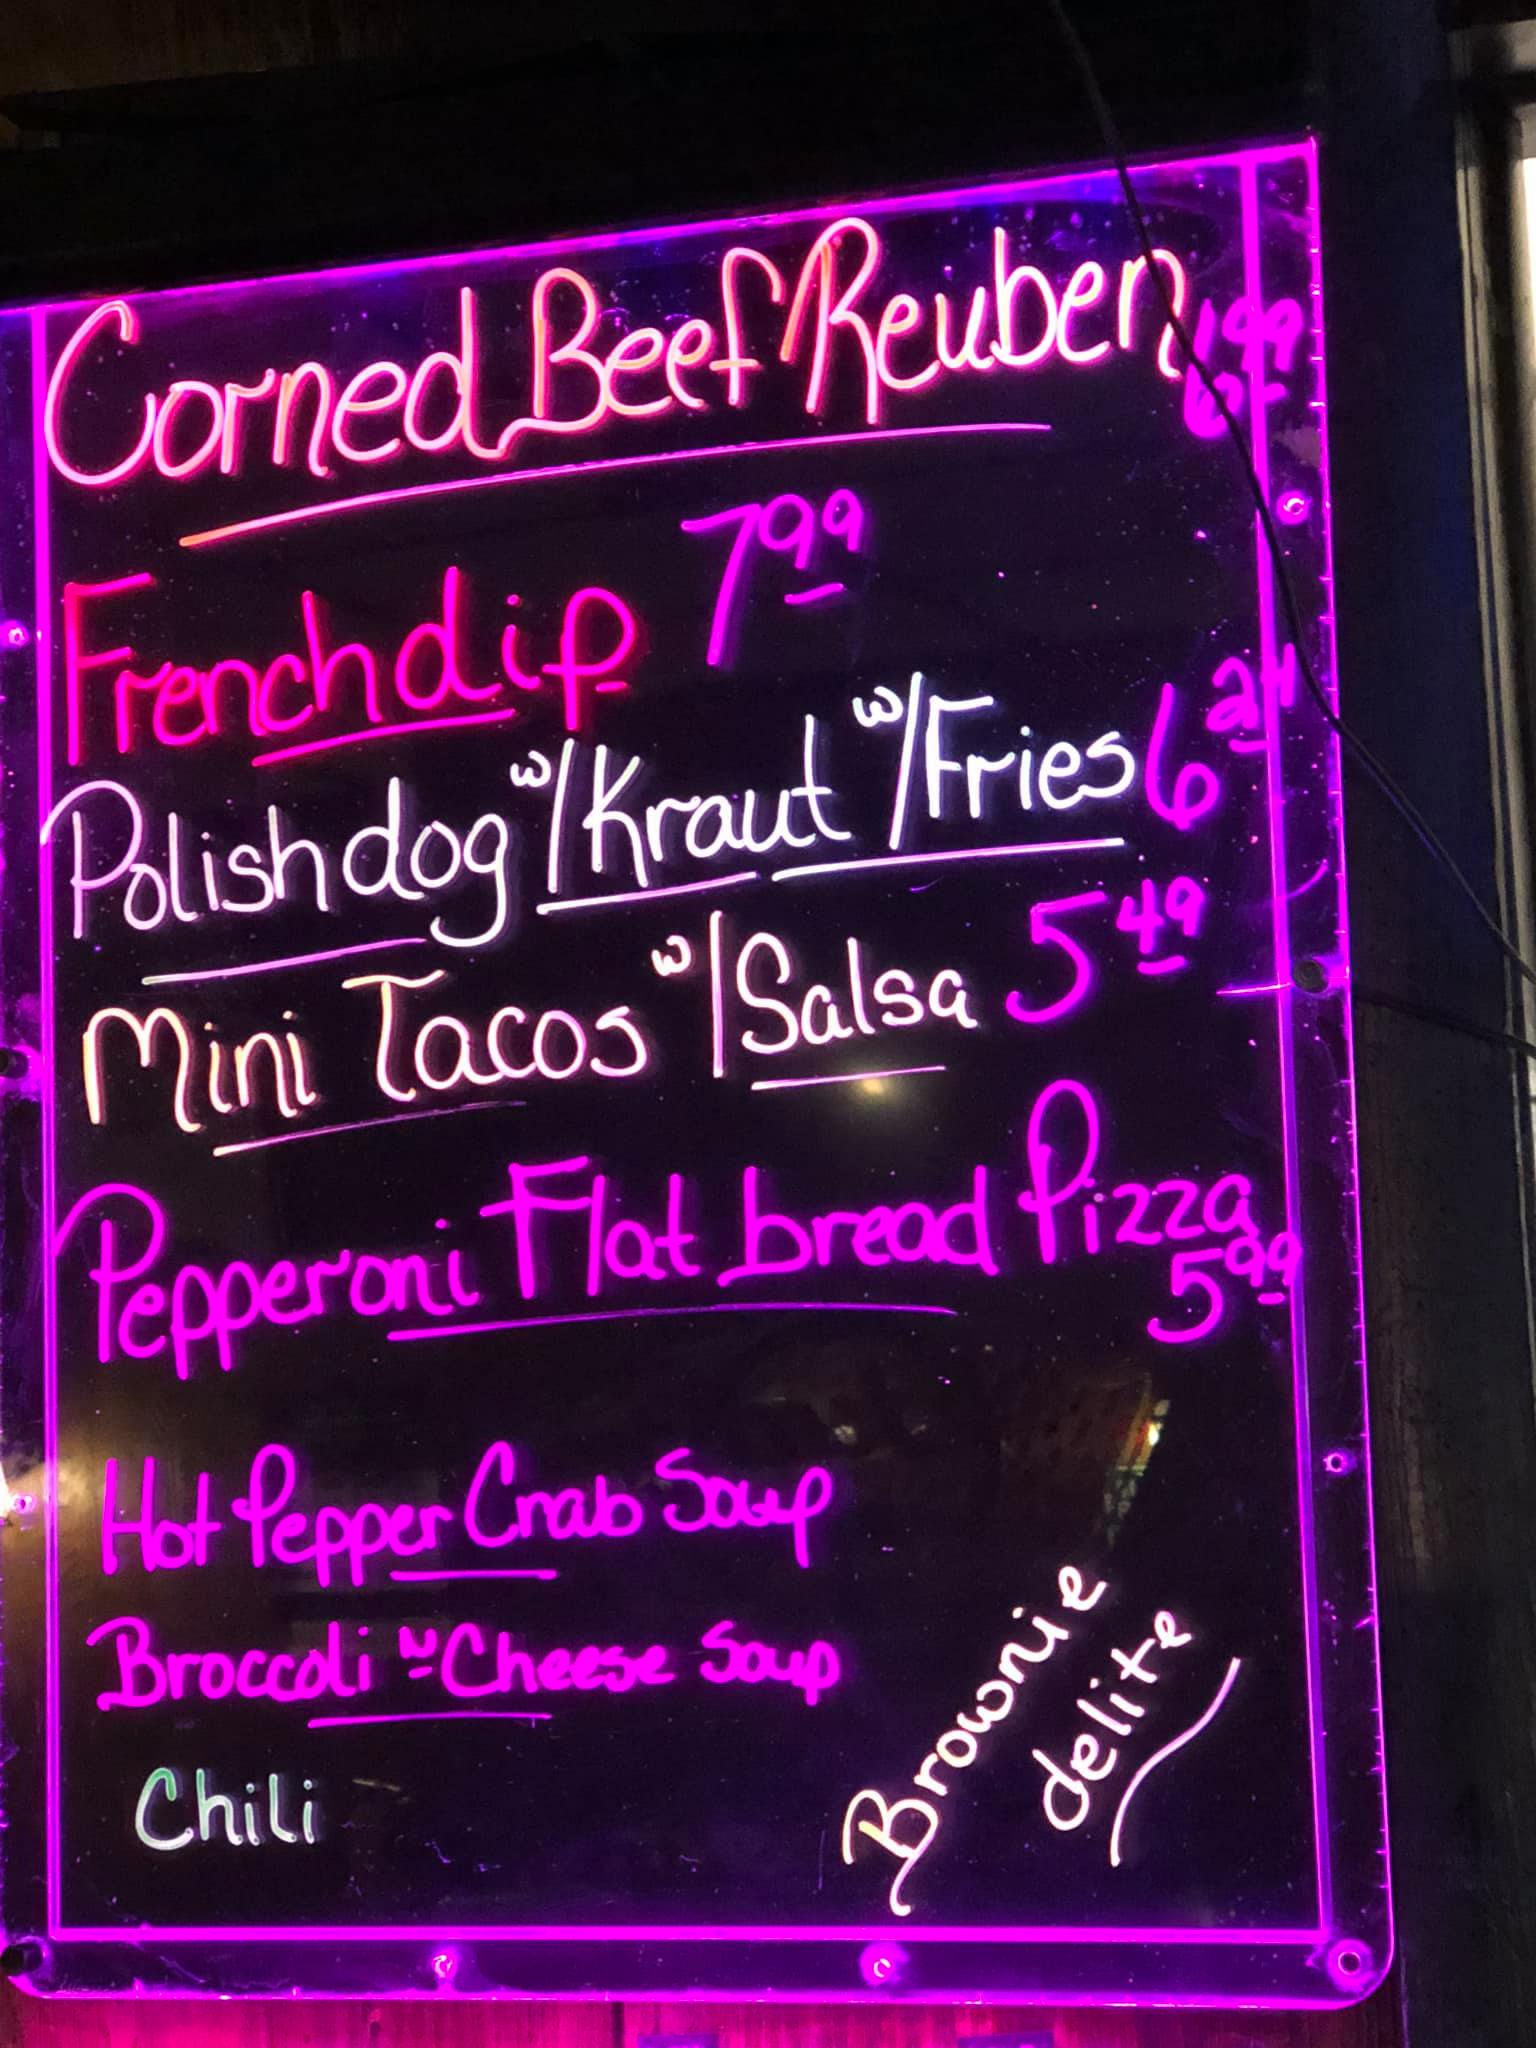 Corned Beef Reuben 6 99
French dip 7 99
Polish dog w/Kraut w/Fries 6 24
Mini Tacos w/Salsa 5 49
Pepperoni Flat bread Pizza
5 99
Hot Pepper Crab Soup
Broccoli w Cheese Soup
Chili
Brownie
delite